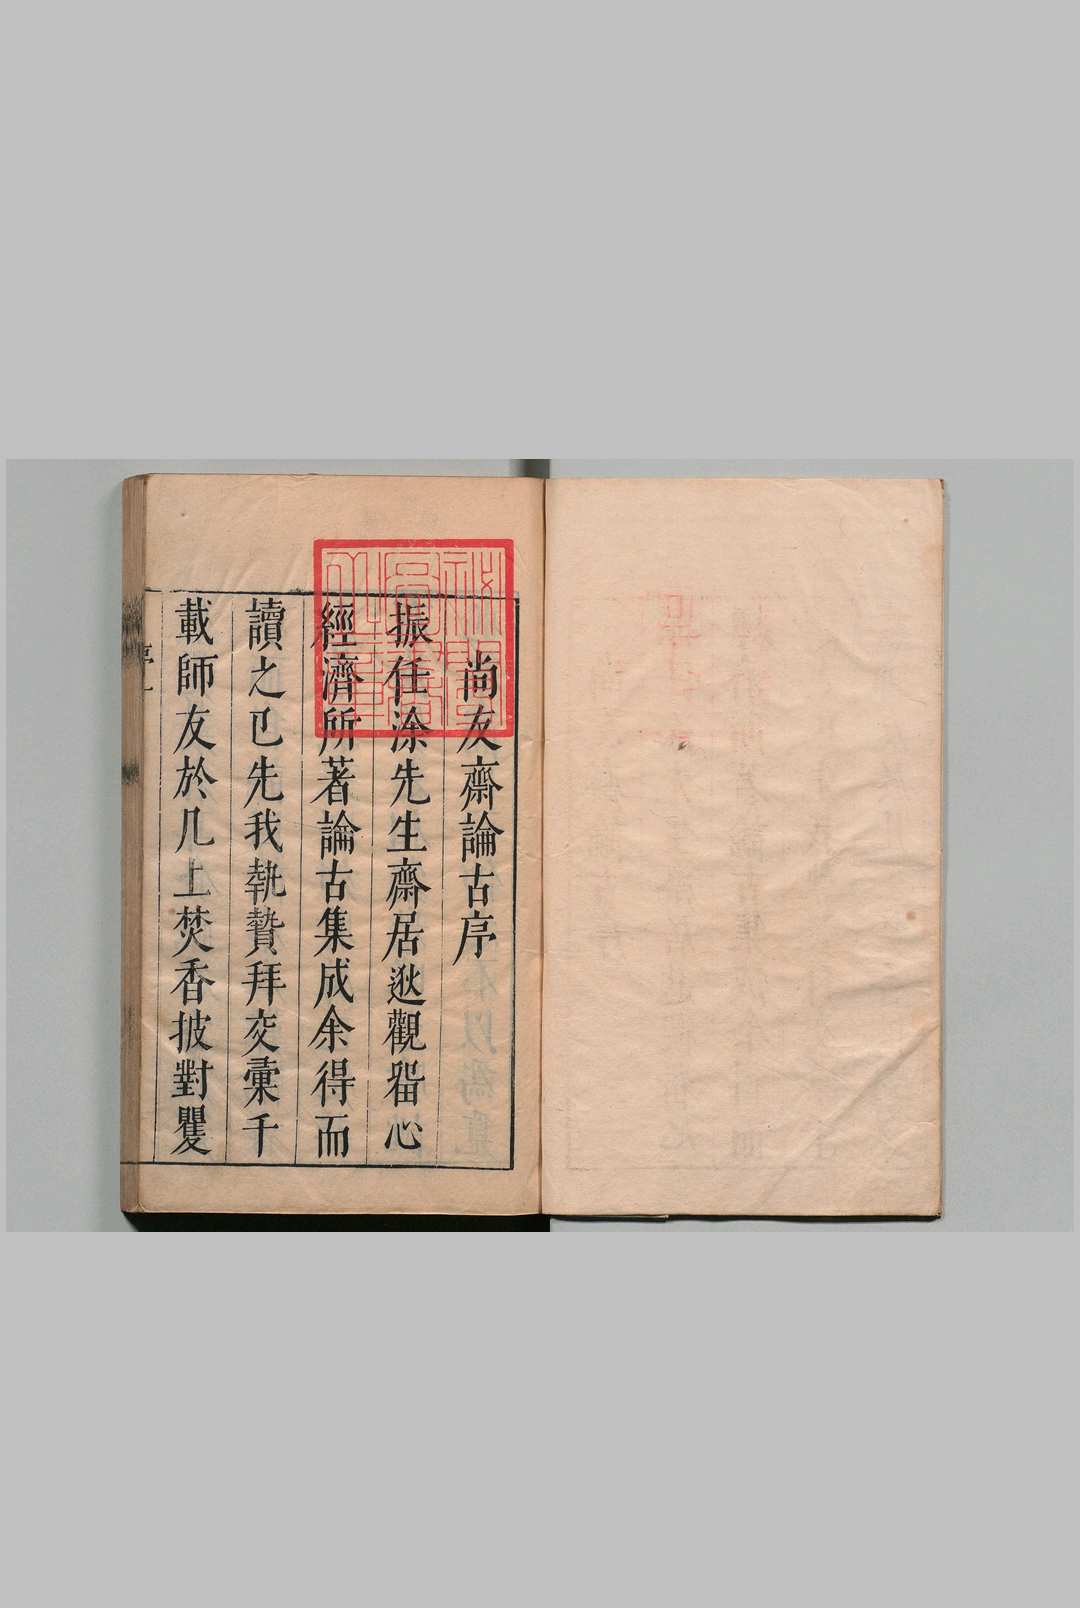 尚友齋論古序
振任涂先生齋居逖觀畱心
經濟所著論古集成余得而
讀之已先我執贄拜交彙千
載師友於几上焚香披對矍
序一